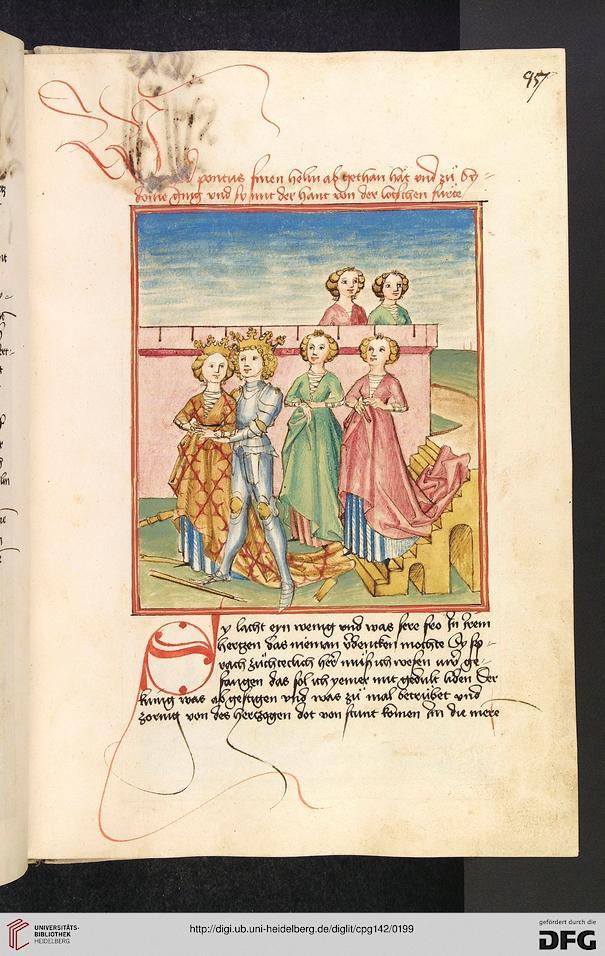 97
pontus sinen helm ab gethan hat und zü Sy-
donie ging und sy mit der hant von der letschen fürte
Sy lacht eyn wenig vnd was sere fro In irem
hertzen das nieman verdencken mochte Sy sp-
rach züchteclich herr müß ich wesen uwer ge-
fangen das sol ich yemer mit gedult liden Der
künig was abgestigen vnd was zü mal betrübet vnd
zornig von des hertzogen dot von stunt komen Im die mere
UNIVERSITÄTS-
BIBLIOTHEK
HEIDELBERG
http://digi.ub.uni-heidelberg.de/diglit/cpg142/0199
gefördert durch die
DFG